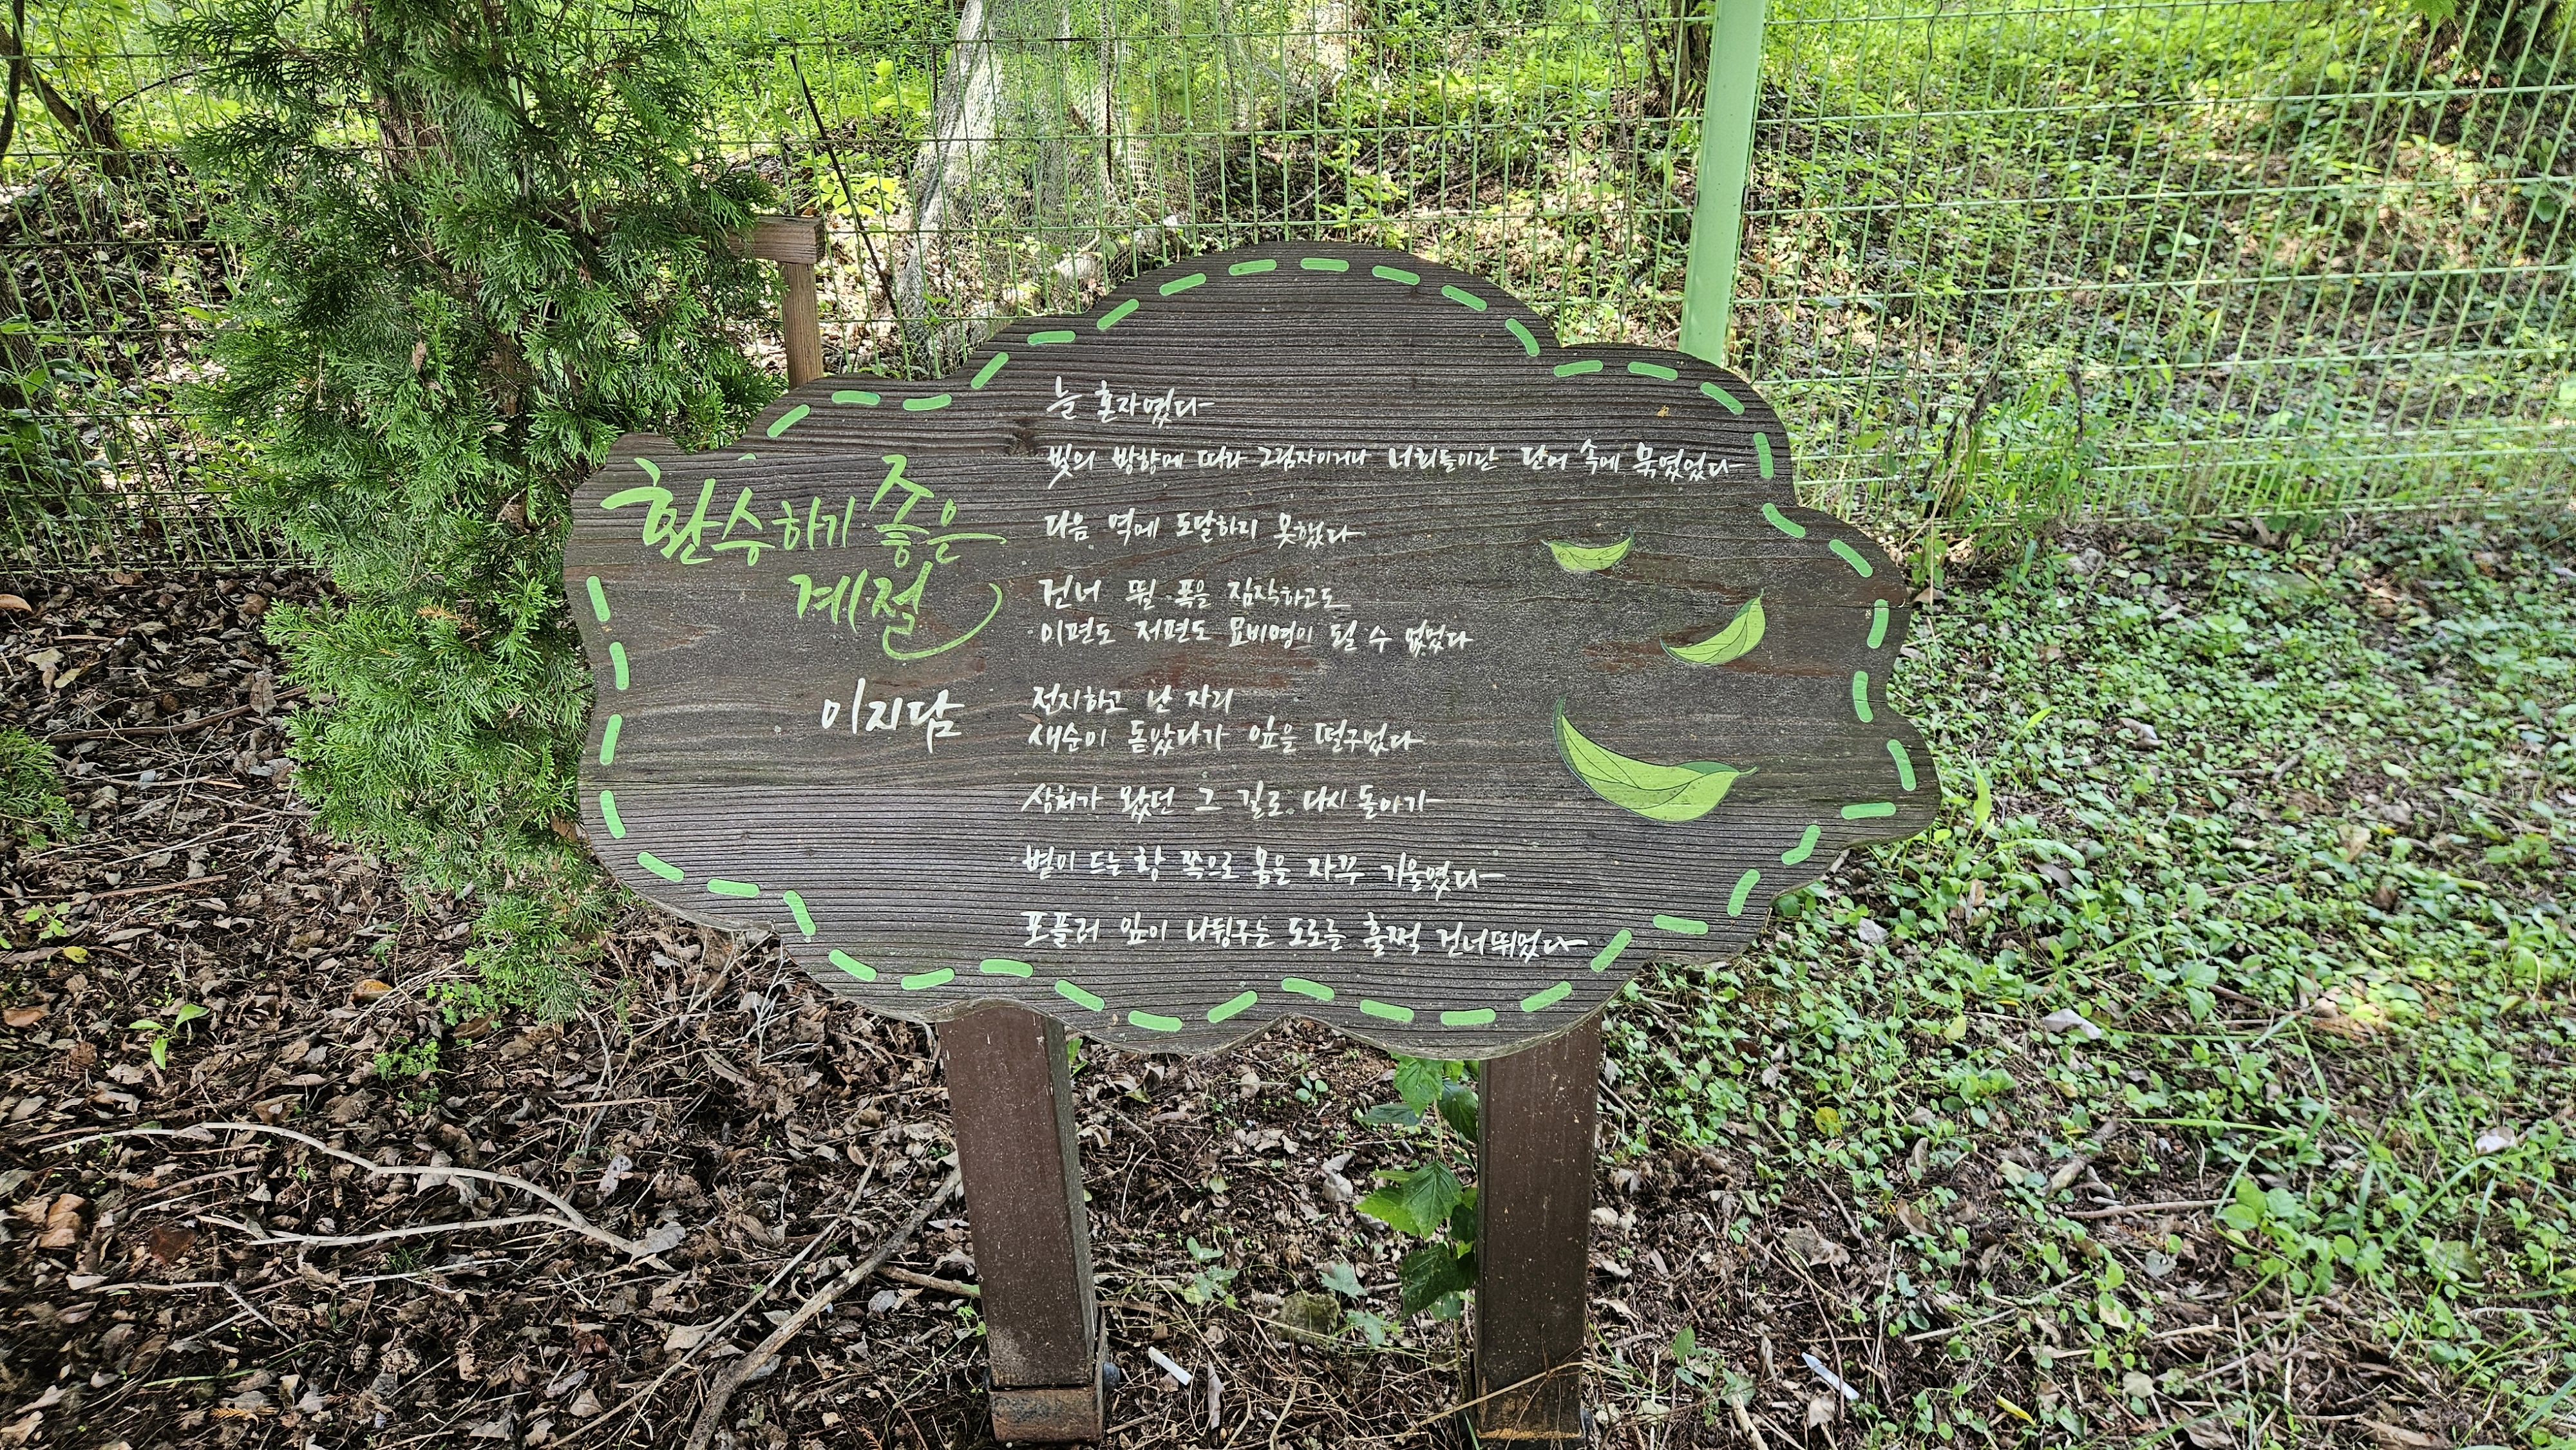 환승하기 좋은
계절
이지담
늘 혼자였다
빛의 방향에 따라 그림자이거나 너희들이란 단어 속에 묶였었다
다음 역에 도달하지 못했다
건너 뛸 폭을 짐작하고도
이편도 저편도 묘비명이 될 수 없었다
전지하고 난 자리
새순이 돋았다가 잎을 떨구었다
상처가 왔던 그 길로 다시 돌아가
볕이 드는 창 쪽으로 몸은 자꾸 기울였다
포플러 잎이 나뒹구는 도로를 훌쩍 건너뛰었다